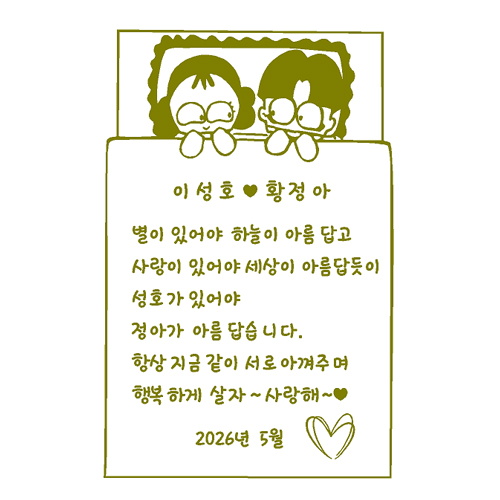 이성호 ♥ 황정아
별이 있어야 하늘이 아름답고
사랑이 있어야 세상이 아름답듯이
성호가 있어야
정아가 아름답습니다.
항상 지금같이 서로 아껴주며
행복하게 살자~사랑해~♥
2026년 5월